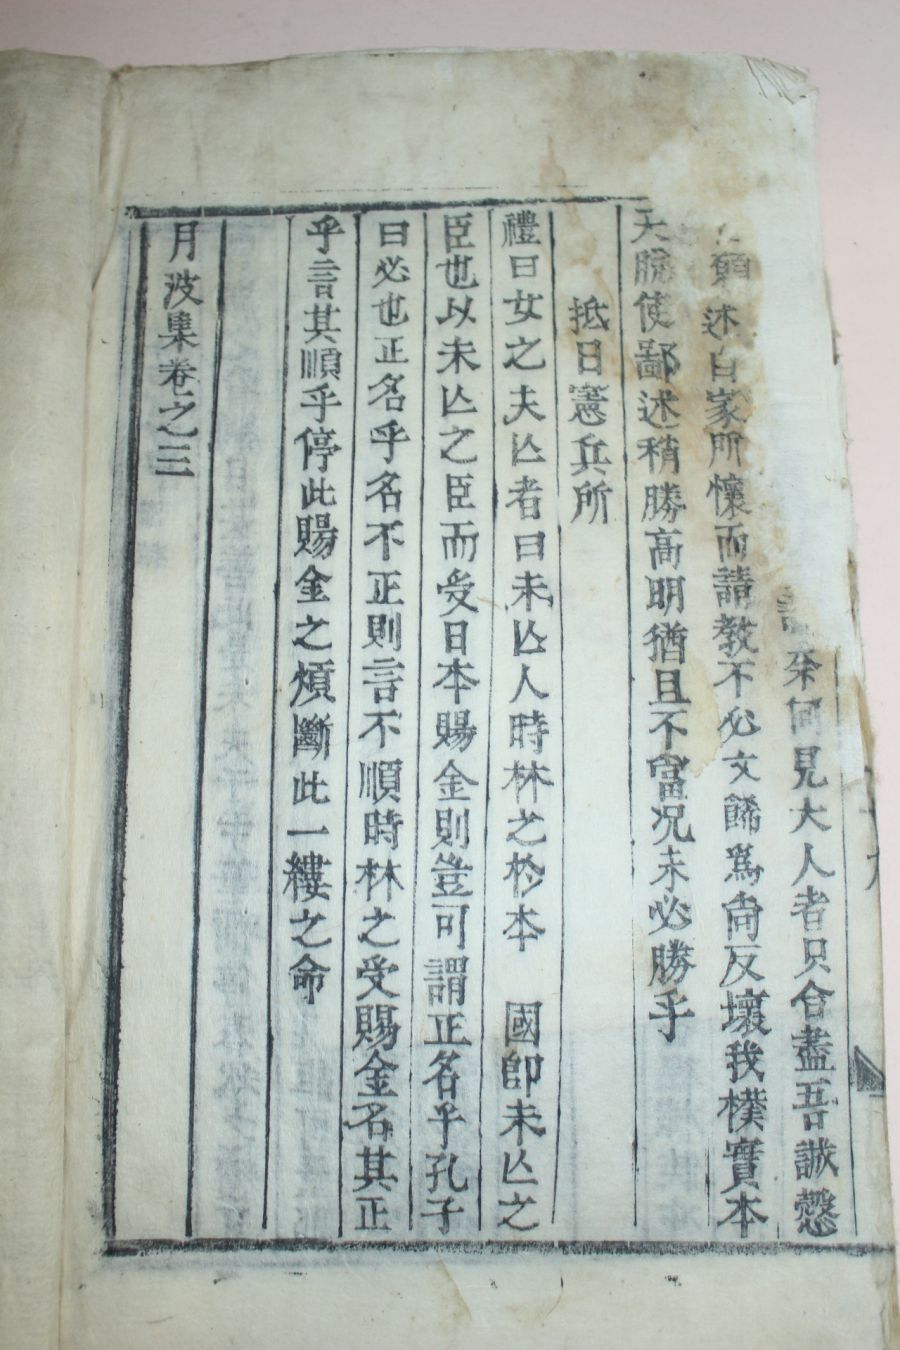 來何見大人者只合盡吾誠慤
述自家所懷而請教不必文餙爲尙反壞我樸實本
天勝使鄙述稍勝高明猶且不當况未必勝乎
抵日憲兵所
禮曰女之夫亾者曰未亾人時林之扵本 國卽未亾之
臣也以未亾之臣而受日本賜金則豈可謂正名乎孔子
曰必也正名乎名不正則言不順時林之受賜金名其正
乎言其順乎停此賜金之煩斷此一縷之命
月波集卷之三